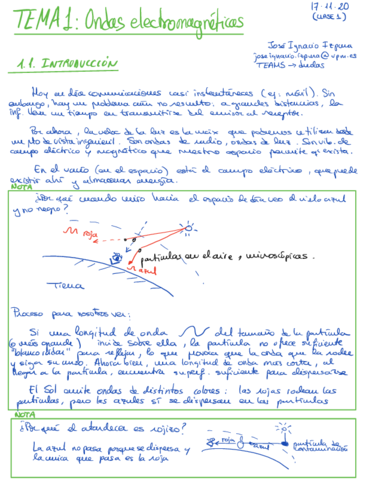 TEMA 1: Ondas electromagnéticas
17-11-20
(CLASE 1)
José Ignacio Izpura
TEAMS → dudas
1.1. INTRODUCCIÓN
Hoy en día comunicaciones casi instantáneas (ej: móvil). Sin
embargo, hay un problema aún no resuelto: a grandes distancias, la
inf. lleva un tiempo en transmitirse del emisor al receptor.
Por ahora, la veloc de la luz es la máx que podemos utilizar desde
un pto de vista ingenieril. Son ondas de radio, ondas de luz. Son vib. de
campo eléctrico y magnético que nuestro espacio permite q exista.
En el vacío (en el espacio) está el campo eléctrico, que puede
existir ahí y almacenar energía.
NOTA
¿Por qué cuando miro hacia el espacio de día veo el cielo azul
y no negro?
roja
partículas en el aire, microscópicas.
azul
Tierra
Proceso para nosotros ver:
Si una longitud de onda del tamaño de la partícula
(o más grande) incide sobre ella, la partícula no ofrece suficiente
para reflejar, lo que provoca que la onda que la rodee
y siga su curso. Ahora bien, una longitud de onda más corta, al
llegar a la partícula, encuentra superf. suficiente para dispersarse
El Sol emite ondas de distintos colores: las rojas rodean las
partículas, pero las azules sí se dispersan en las partículas
NOTA
¿Por qué el atardecer es rojizo?
La azul no pasa porque se dispersa y
la única que pasa es la roja
roja
azul
partícula de
contaminación